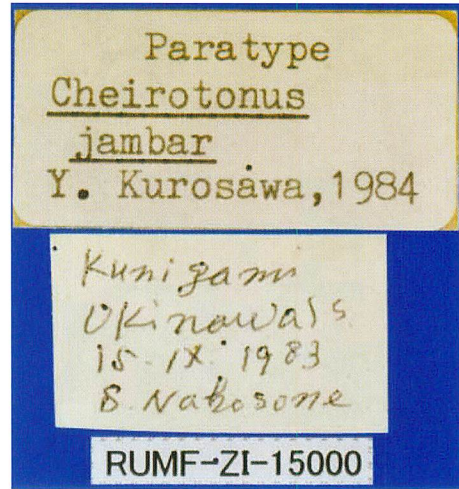 Paratype
Cheirotonus
jambar
Y. Kurosawa,1984
Kunigami
Okinawa Is.
15. IX. 1983
S. Nakosone
RUMF-ZI-15000